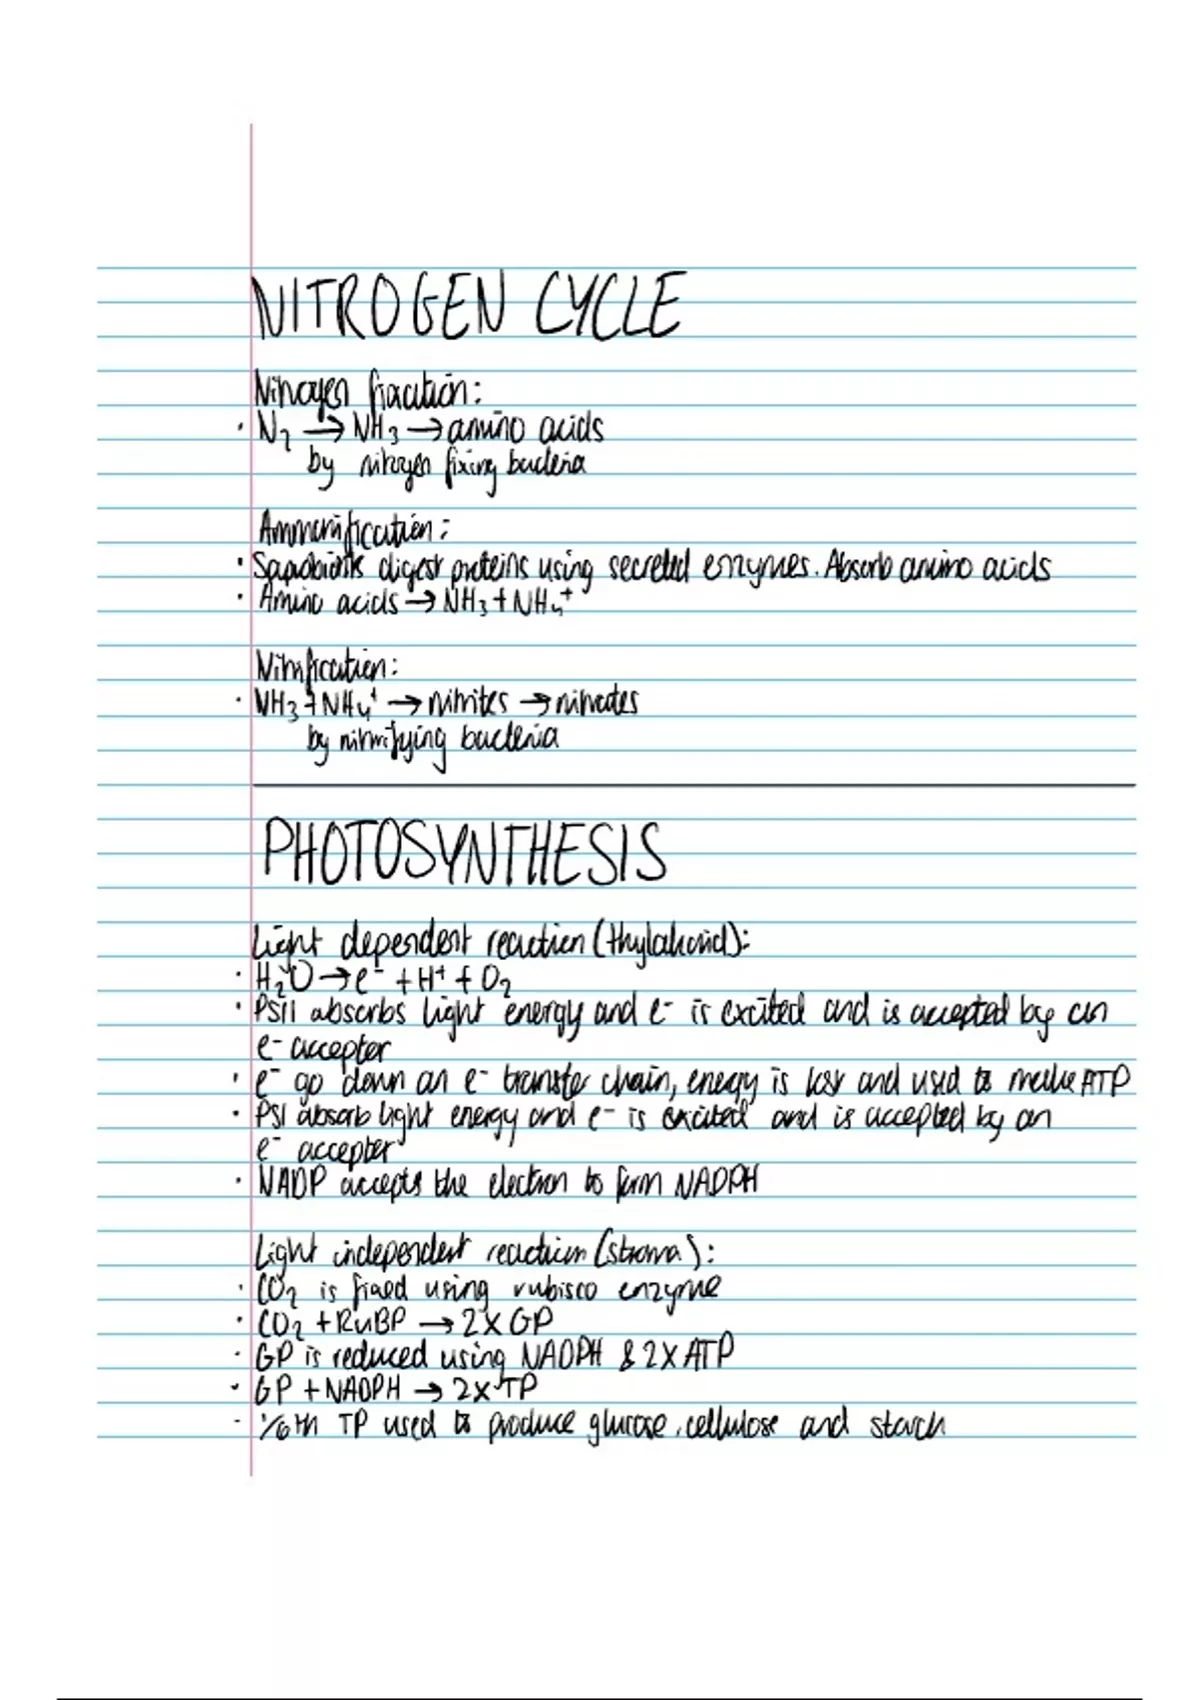 NITROGEN CYCLE
Nitrogen fixation:
· N₂ → NH₃ → amino acids
by nitrogen fixing bacteria
Ammonification:
· Saprobionts digest proteins using secreted enzymes. Absorb amino acids
· Amino acids → NH₃ + NH₄⁺
Nitrification:
· NH₃ + NH₄⁺ → nitrites → nitrates
by nitrifying bacteria
PHOTOSYNTHESIS
Light dependent reaction (thylakoid):
· H₂O → e⁻ + H⁺ + O₂
· PSII absorbs light energy and e⁻ is excited and is accepted by an
e⁻ accepter
· e⁻ go down an e⁻ transfer chain, energy is lost and used to make ATP
· PSI absorb light energy and e⁻ is excited and is accepted by an
e⁻ accepter
· NADP accepts the electron to form NADPH
Light independent reaction (stroma):
· CO₂ is fixed using rubisco enzyme
· CO₂ + RuBP → 2X GP
· GP is reduced using NADPH & 2X ATP
· GP + NADPH → 2X TP
· 1/6th TP used to produce glucose, cellulose and starch